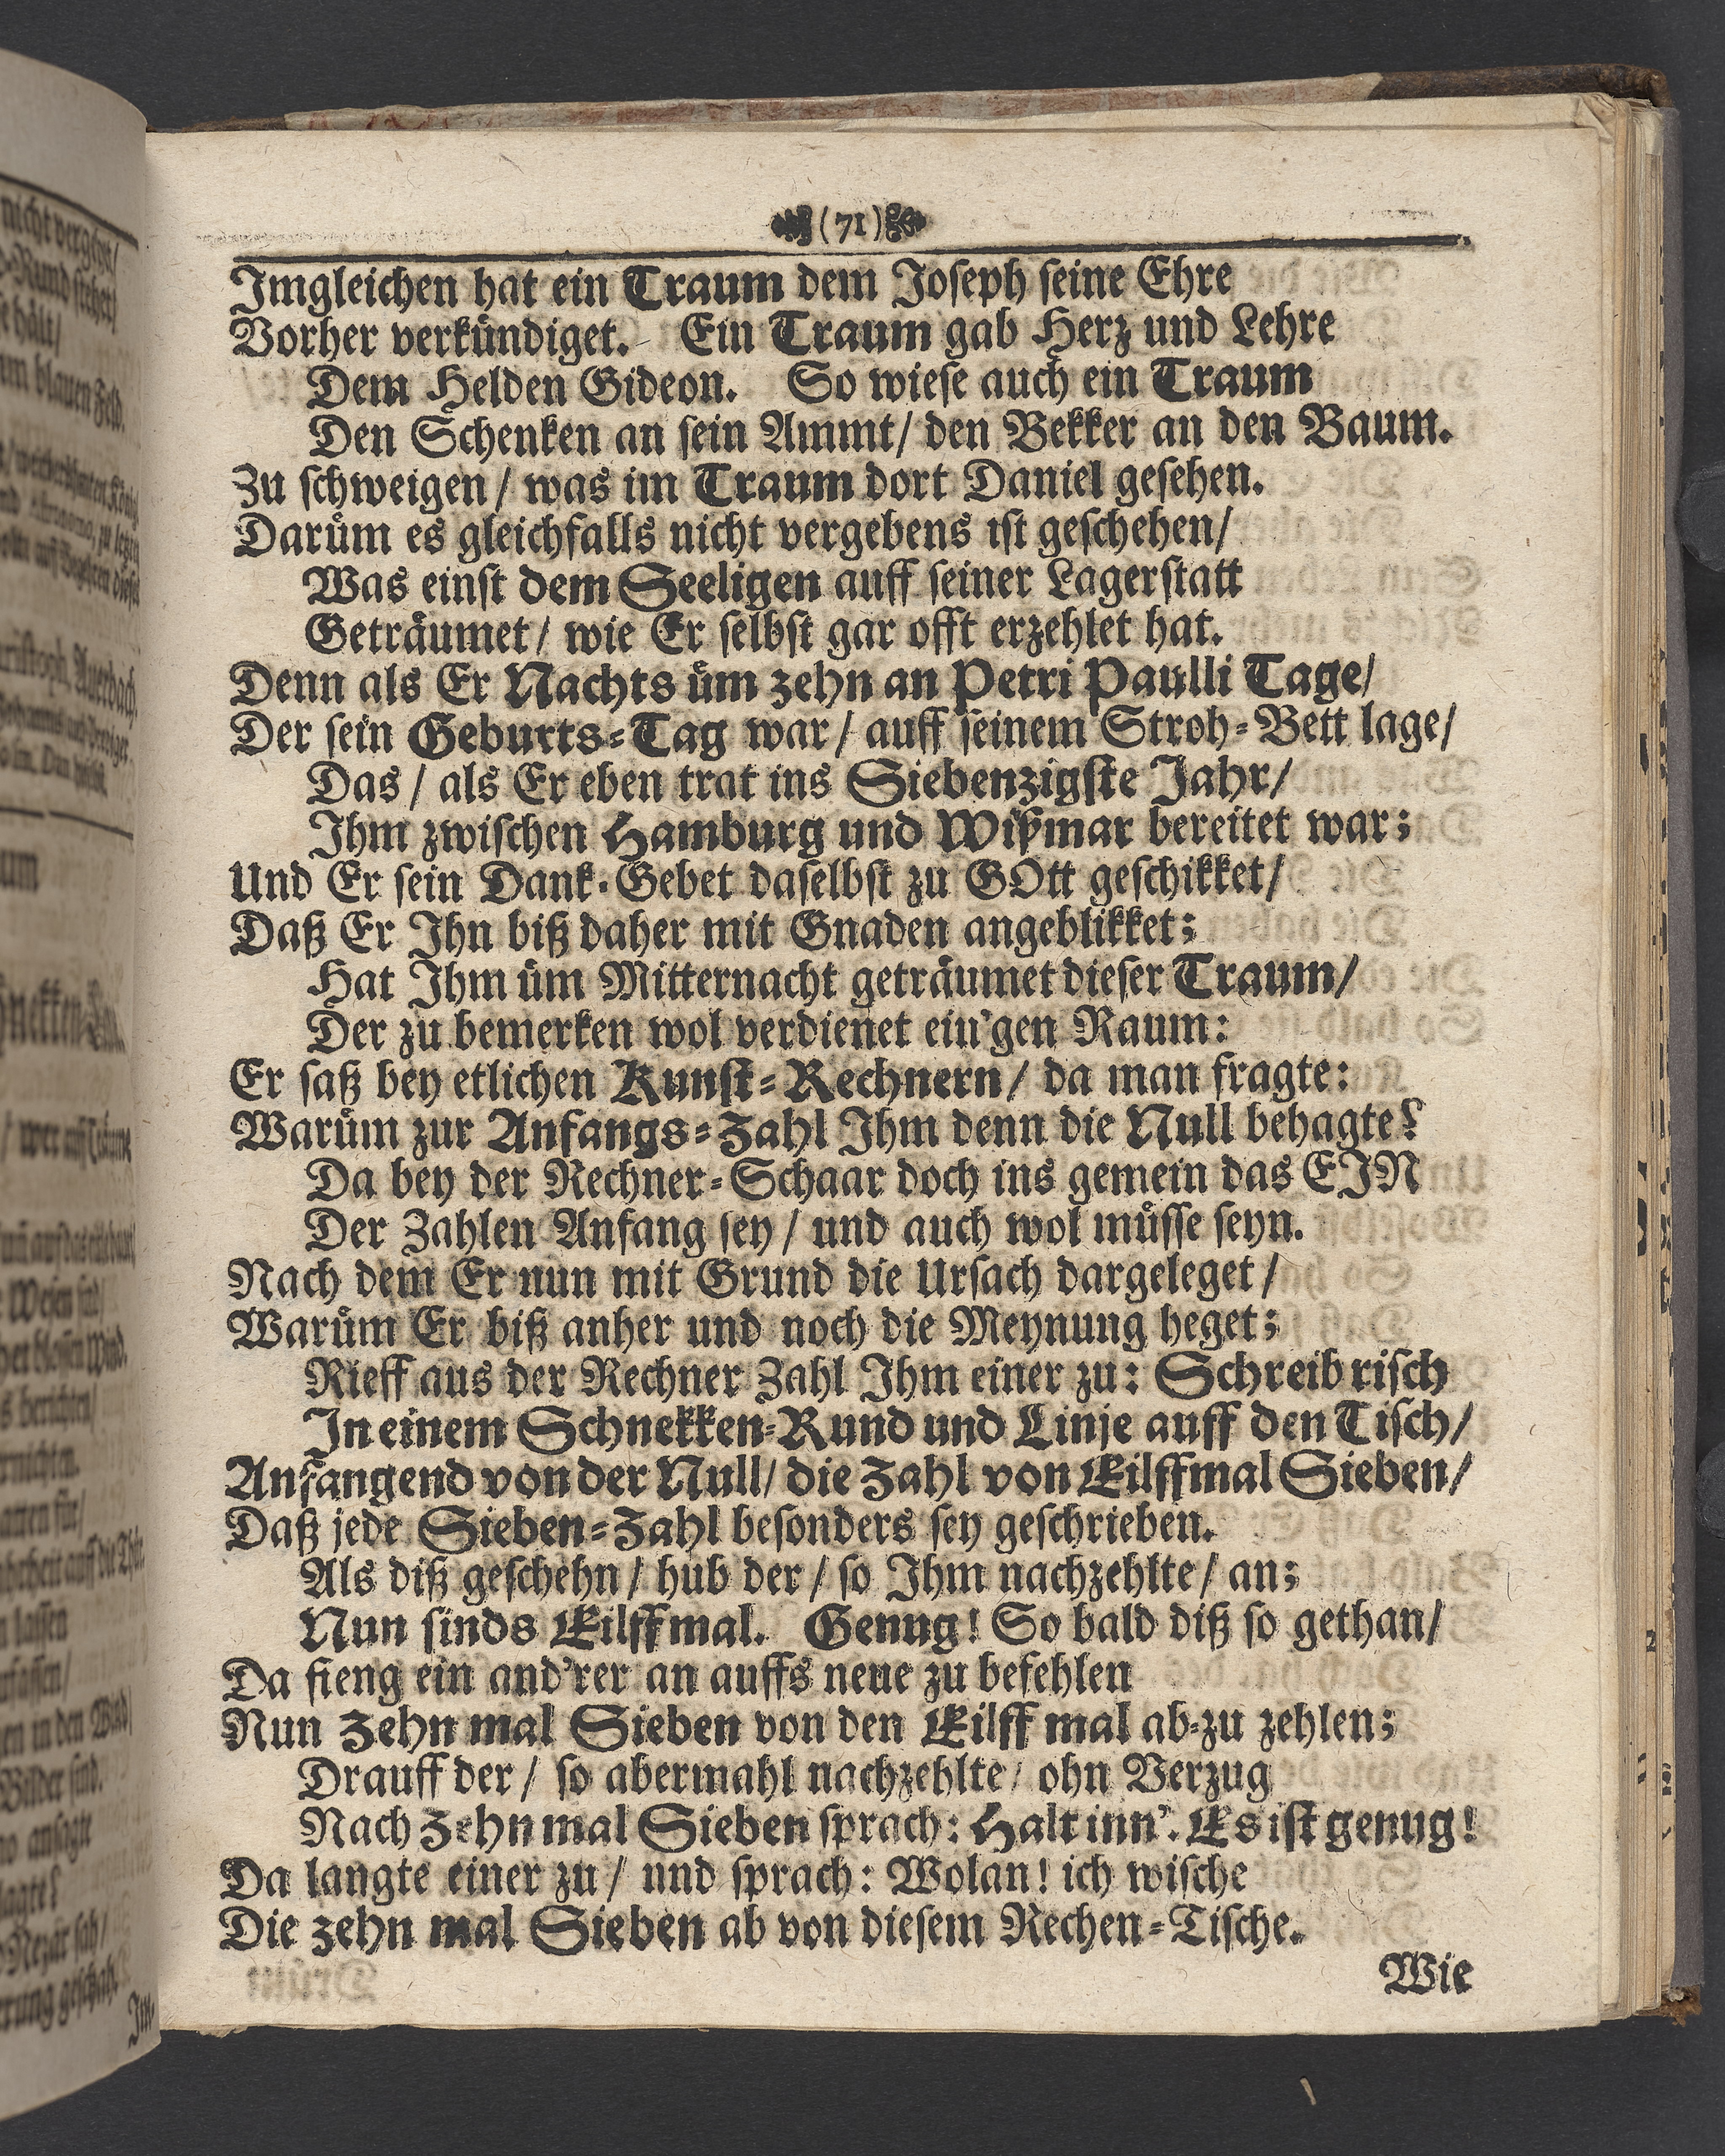 (71)
Imgleichen hat ein Traum dem Joseph seine Ehre
Vorher verkündiget. Ein Traum gab Herz und Lehre
Dem Helden Gideon. So wiese auch ein Traum
Den Schenken an sein Ammt/ den Bekker an den Baum.
Zu schweigen/ was im Traum dort Daniel gesehen.
Darüm es gleichfalls nicht vergebens ist geschehen/
Was einst dem Seeligen auff seiner Lagerstatt
Geträumet/ wie Er selbst gar offt erzehlet hat.
Denn als Er Nachts üm zehn an Petri Paulli Tage/
Der sein Geburts-Tag war/ auff seinem Stroh-Bett lage/
Das/ als Er eben trat ins Siebenzigste Jahr/
Ihm zwischen Hamburg und Wißmar bereitet war;
Und Er sein Dank-Gebet daselbst zu GOtt geschikket/
Daß Er Ihn biß daher mit Gnaden angeblikket;
Hat Ihm üm Mitternacht geträumet dieser Traum/
Der zu bemerken wol verdienet ein'gen Raum:
Er saß bey etlichen Kunst-Rechnern/ da man fragte:
Warüm zur Anfangs-Zahl Ihm denn die Null behagte?
Da bey der Rechner-Schaar doch ins gemein das EIN
Der Zahlen Anfang sey/ und auch wol müsse seyn.
Nach dem Er nun mit Grund die Ursach dargeleget/
Warüm Er biß anher und noch die Meynung heget;
Rieff aus der Rechner Zahl Ihm einer zu: Schreib risch
In einem Schnekken-Rund und Linje auff den Tisch/
Anfangend von der Null/ die Zahl von Eilffmal Sieben/
Daß jede Sieben-Zahl besonders sey geschrieben.
Als diß geschehn/ hub der/ so Ihm nachzehlte/ an;
Nun sinds Eilffmal. Genug! So bald diß so gethan/
Da fieng ein and'rer an auffs neue zu befehlen
Nun zehn mal Sieben von den Eilff mal ab-zu zehlen;
Drauff der/ so abermahl nachzehlte/ ohn Verzug
Nach zehn mal Sieben sprach: Halt inn'. Es ist genug!
Da langte einer zu/ und sprach: Wolan! ich wische
Die zehn mal Sieben ab von diesem Rechen-Tische.
Wie